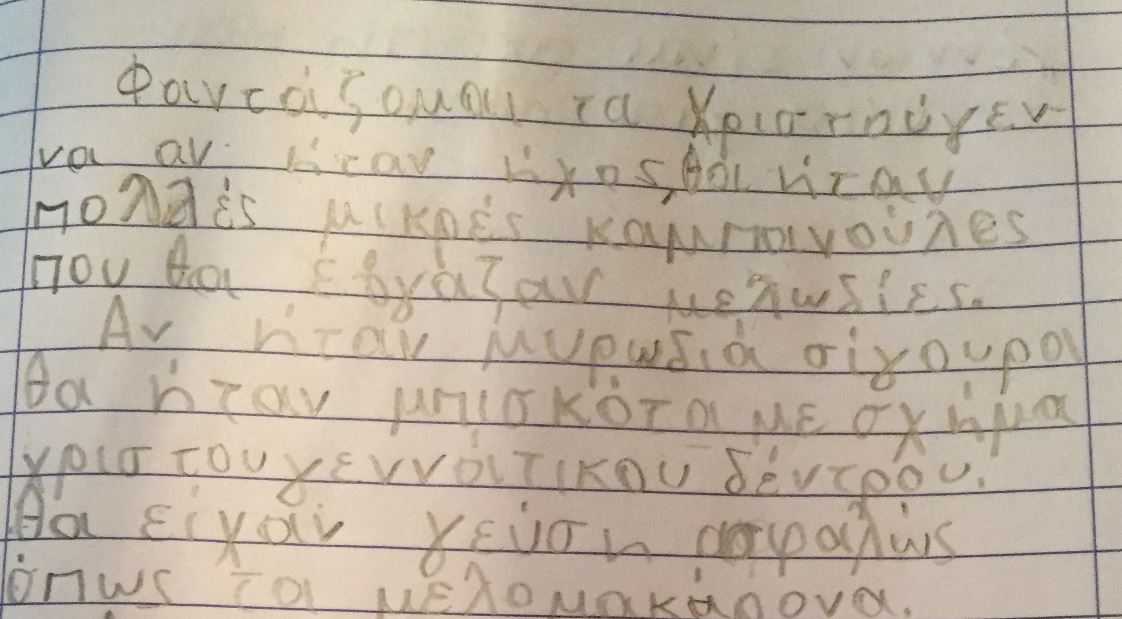 Φαντάζομαι τα Χριστούγεν-
να αν ήταν ήχος, θα ήταν
πολλές μικρές καμπανούλες
που θα έβγαζαν μελωδίες.
Αν ήταν μυρωδιά σίγουρα
θα ήταν μπισκότα με σχήμα
χριστουγεννιάτικου δέντρου.
Θα είχαν γεύση ασφαλώς
όπως τα μελομακάρονα.